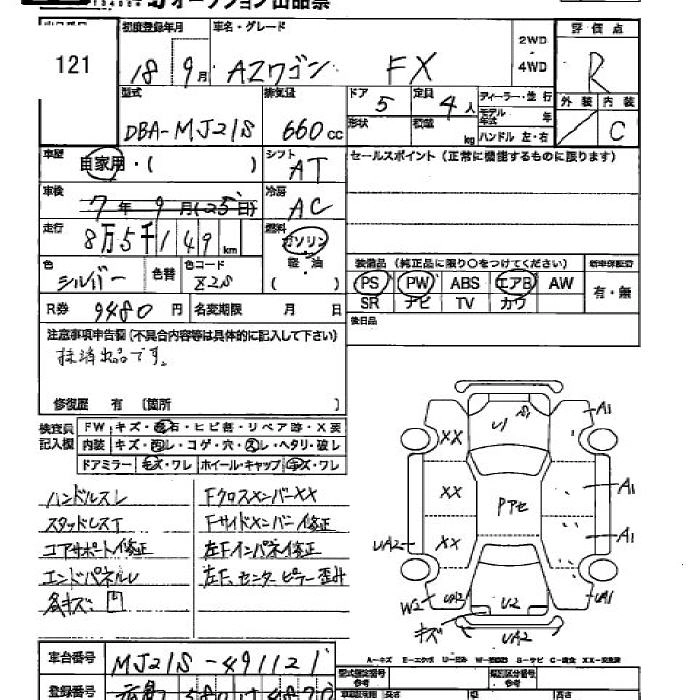 オークション出品票
121
初度登録年月 車名・グレード 評価点
18 9月 AZワゴン FX 2WD・4WD R
型式 排気量 ドア 定員 ディーラー・並行 外装 内装
DBA-MJ21S 660cc 5 4人 モデル年式 年 C
形状 積載 kg ハンドル 左・右
車歴 自家用・( ) シフト AT セールスポイント(正常に機能するものに限ります)
車検 7年 9月(25日) 冷房 AC
走行 8万5千149km 燃料 ガソリン
軽・油
( )
色 シルバー 色替 色コード Z2S
装備品(純正品に限り○をつけてください) 新車保証書
PS PW ABS エアB AW 有・無
SR ナビ TV カワ
R券 9480円 名変期限 月 日
後日品
注意事項申告欄(不具合内容等は具体的に記入して下さい)
抹消出品です。
修復歴 有 [箇所 ]
検査員記入欄 FW キズ・飛石・ヒビ割・リペア跡・X要
内装 キズ・汚レ・コゲ・穴・スレ・ヘタリ・破レ
ドアミラー キズ・ワレ ホイール・キャップ キズ・ワレ
ハンドルスレ FクロスメンバーXX
スタッドレスT Fサイドメンバー修正
コアサポート修正 左Fインパネ修正
エンドパネルU 左F、センターピラー歪ミ
各キズ
U1 A1 A1
XX
XX Pアセ A1
XX A1
UA2
W2 UA2 U2 UA1
キズ UA2
A-キズ E-エクボ U-ヘコミ W-波 S-サビ C-腐食 XX-交換済
車台番号 MJ21S-491121
登録番号 広島 580
型式指定番号 類別区分番号
参考 参考
長さ